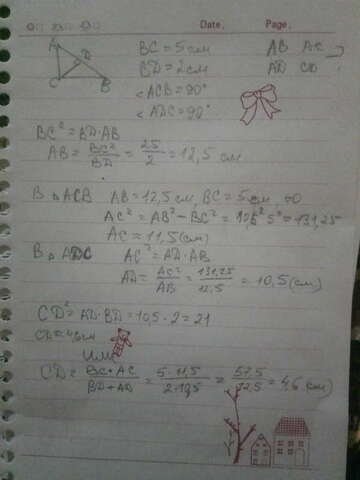 Date. Page.
A D C B
BC = 5 см AB AC ?
BD = 2 см AD CD
<ACB = 90°
<ADC = 90°
BC² = BD·AB
AB = BC²/BD = 25/2 = 12,5 см
В △ACB AB = 12,5 см, BC = 5 см,
AC² = AB² - BC² = = 131,25
AC = 11,5 (см)
В △ADC AC² = AD·AB
AD = AC²/AB = 131,25/12,5 = 10,5 (см)
CD² = AD·BD = 10,5·2 = 21
CD = 4,6 см
или
CD = BC+AC/BD+AD = 5·11,5/2·10,5 = 57,5/12,5 = 4,6 см)